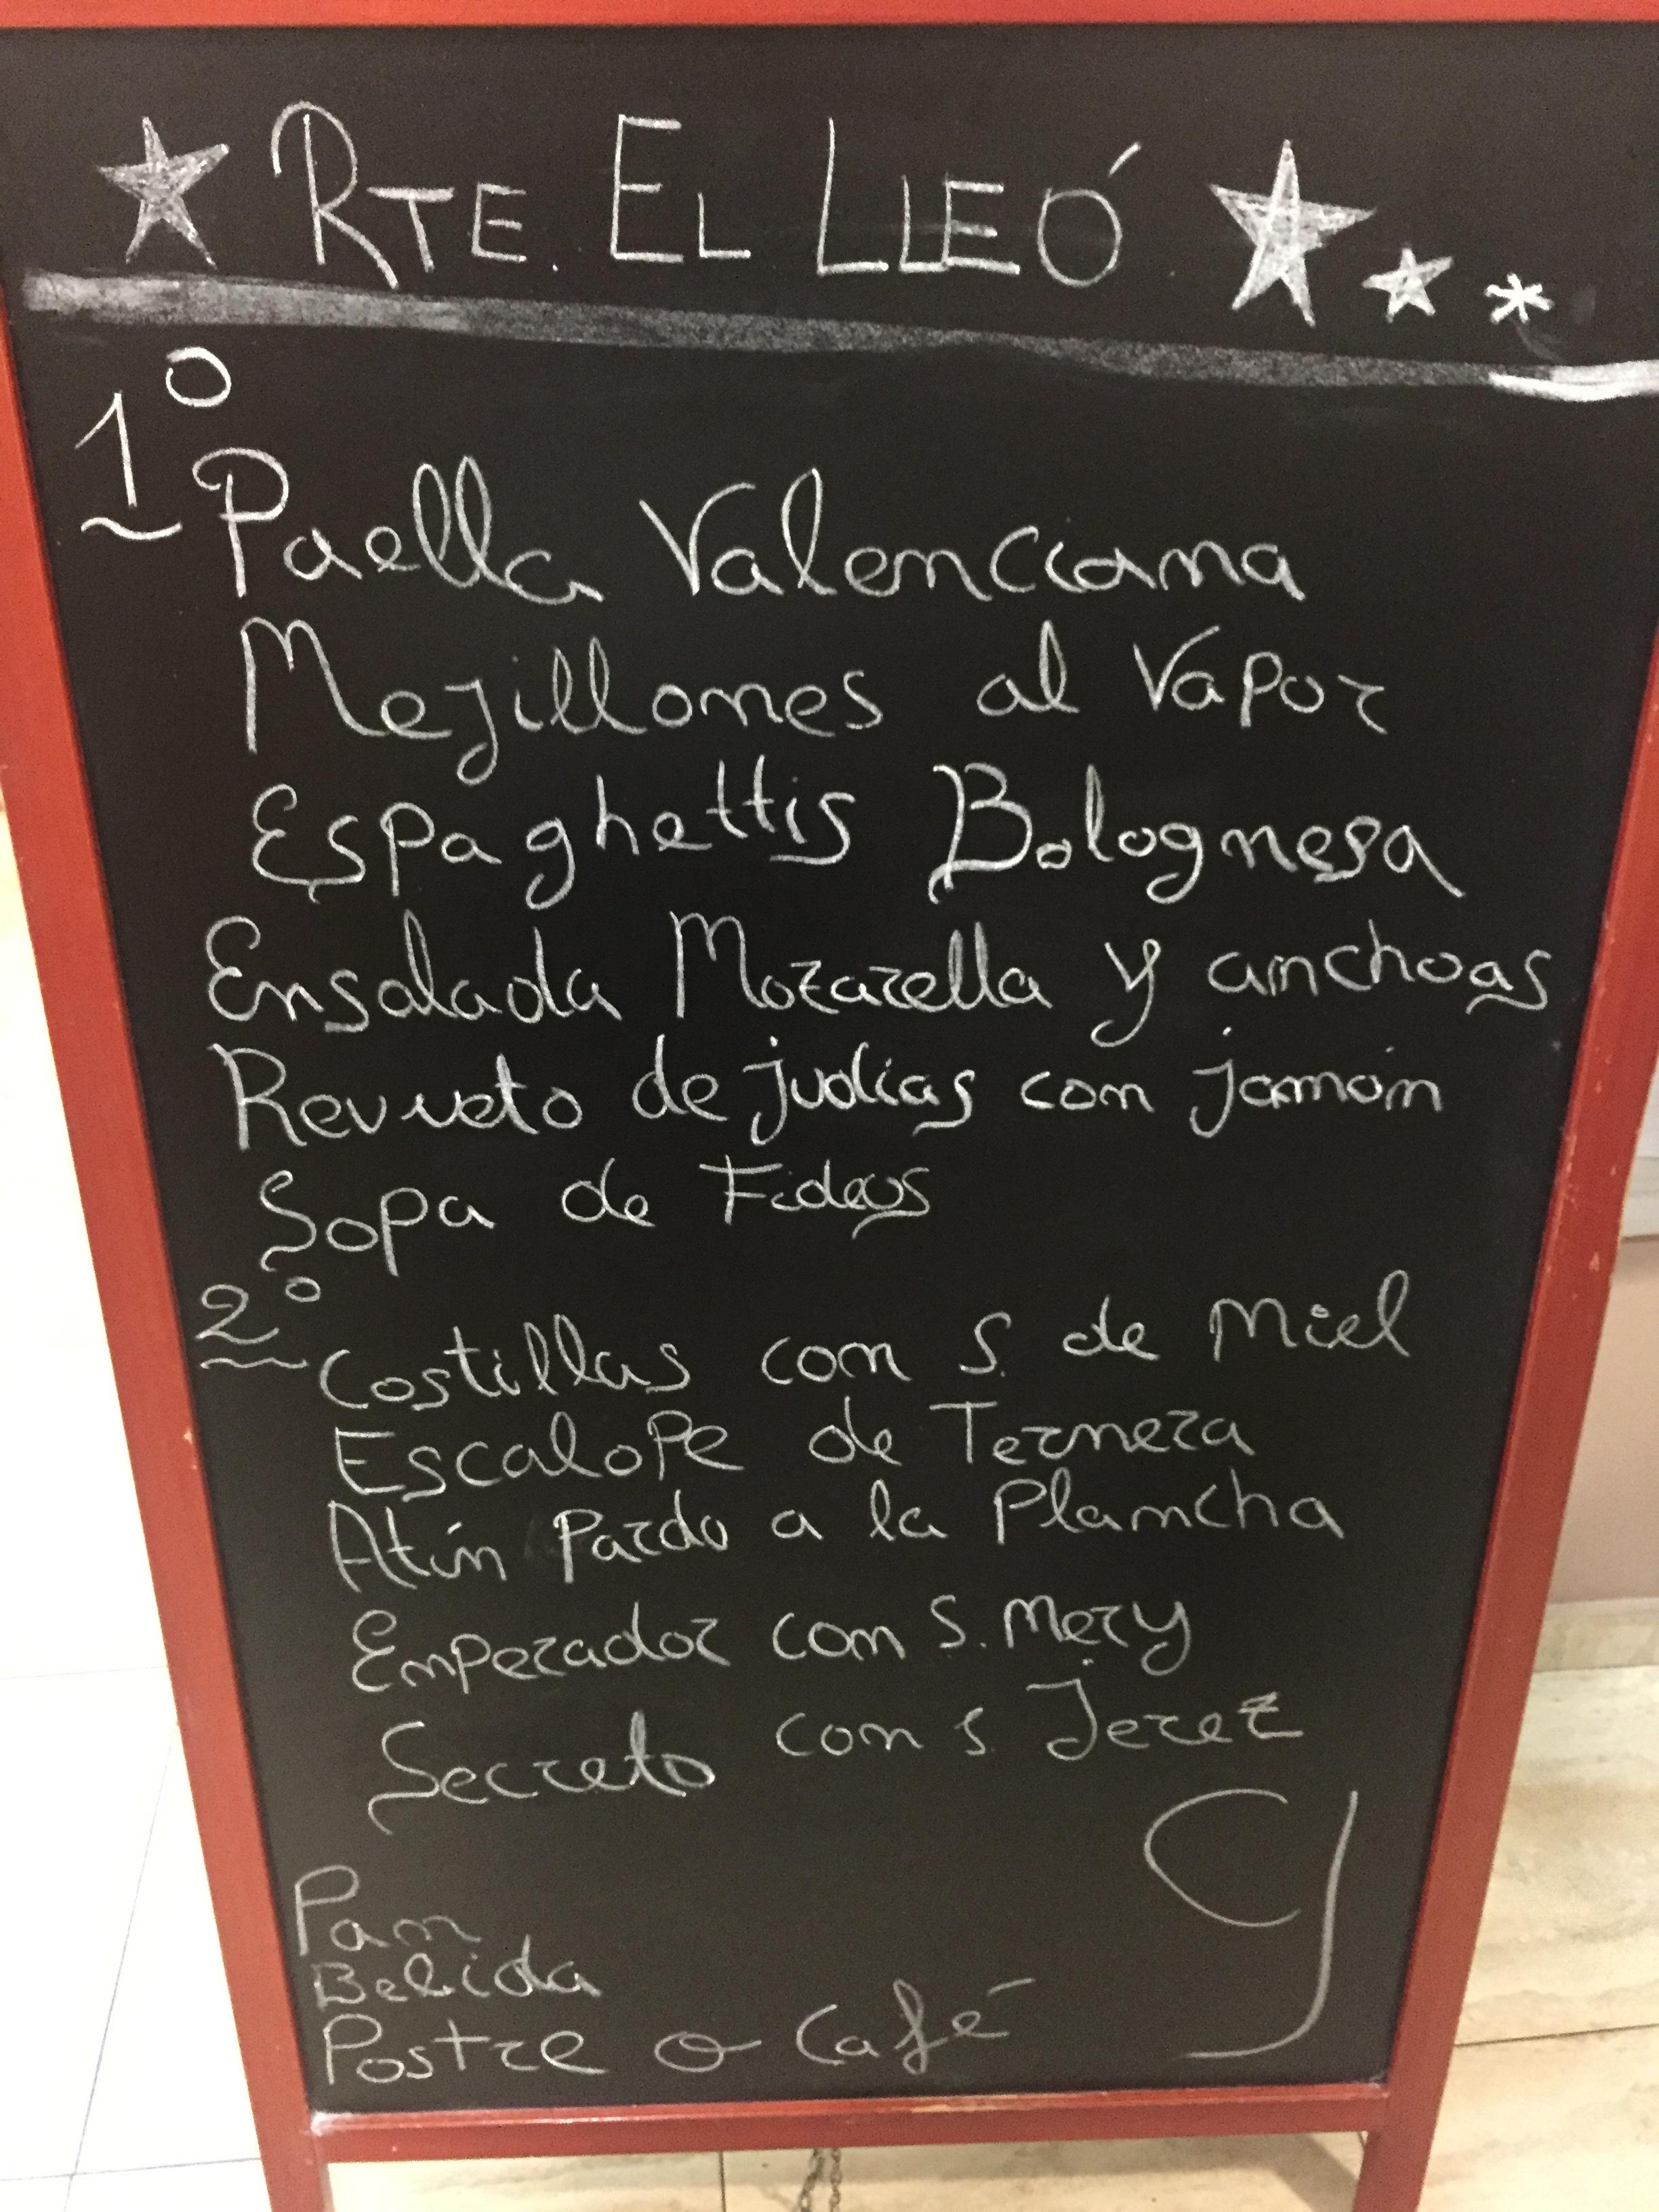 RTE. EL LLEÓ
1º
Paella Valenciana
Mejillones al Vapor
Espaghettis Bolognesa
Ensalada Mozarella y anchoas
Revueto de judías con jamón
Sopa de Fideos
2º
Costillas con S. de Miel
Escalope de Ternera
Atún Pardo a la Plancha
Emperador con S. Mery
Secreto con S. Jerez
9
Pan
Bebida
Postre o Café